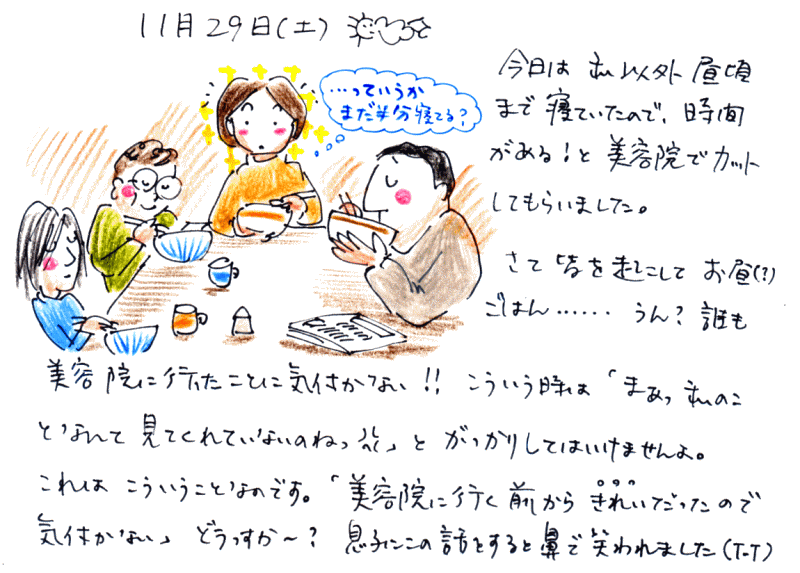 11月29日(土)
…っていうか
まだ半分寝てる?
今日は 私以外 昼頃
まで 寝ていたので、時間
がある!と 美容院でカット
してもらいました。
さて 皆を起こして お昼(?)
ごはん…… うん? 誰も
美容院に行ったことに気付かない!! こういう時は「まあっ 私のこ
となんて 見てくれていないのねっ」と がっかりしてはいけませんよ。
これは こういうことなのです。「美容院に行く前から きれいだったので
気付かない」 どうっすか〜? 息子にこの話をすると鼻で笑われました(T-T)